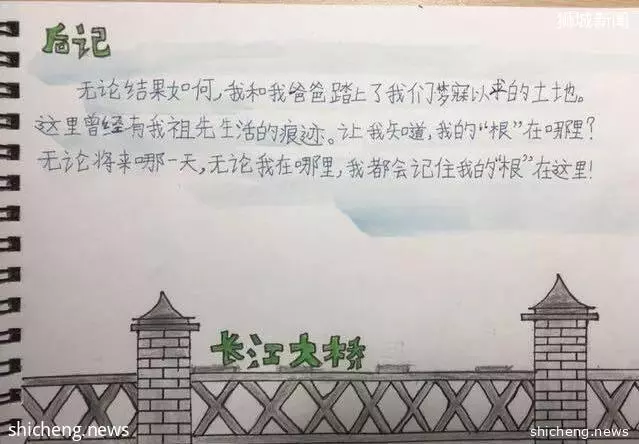 狮城新闻
后记
无论结果如何，我和我爸爸踏上了我们梦寐以求的土地。
这里曾经有我祖先生活的痕迹。让我知道，我的“根”在哪里？
无论将来哪一天，无论我在哪里，我都会记住我的“根”在这里！
长江大桥
shicheng.news
shicheng.news